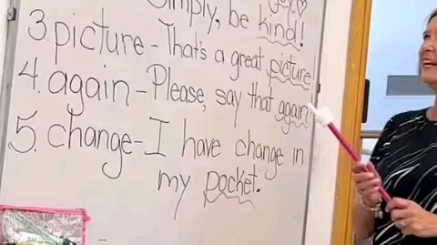 Simply, be kind!
3. picture - That's a great picture!
4. again - Please, say that again!
5. change - I have change in
my pocket.